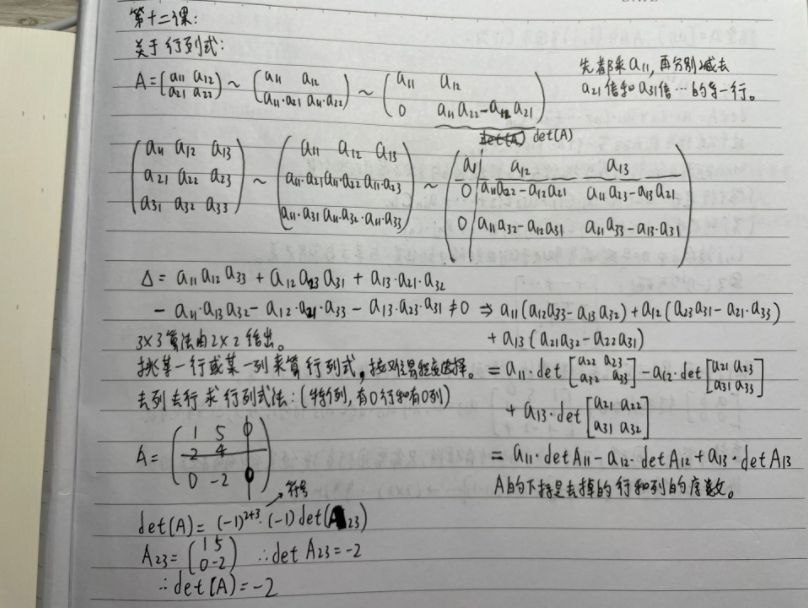 第十二课:
关于行列式:
A=(a11 a12 / a21 a22) ~ (a11 a12 / a11·a21 a11·a22) ~ (a11 a12 / 0 a11a22-a12a21)
det(A)
先都乘a11,再分别减去
a21倍和a31倍…的第一行。
(a11 a12 a13 / a21 a22 a23 / a31 a32 a33) ~ (a11 a12 a13 / a11·a21 a11·a22 a11·a23 / a11·a31 a11·a32 a11·a33) ~ (a11 a12 a13 / 0 a11a22-a12a21 a11a23-a13a21 / 0 a11a32-a12a31 a11a33-a13·a31)
Δ= a11a12a33 + a12a23a31 + a13·a21·a32
- a11·a13a32- a12·a21·a33 - a13·a23·a31 ≠0 ⇒ a11(a12a33-a13a32)+a12(a23a31-a21·a33)
+ a13(a21a32-a22a31)
3×3算法由2×2给出。
挑某一行或某一列来算行列式,
= a11·det[a22 a23 / a32 a33] - a12·det[a21 a23 / a31 a33]
+ a13·det[a21 a22 / a31 a32]
去列去行求行列式法:(特例,有0行和有0列)
= a11·detA11- a12·detA12+a13·detA13
A的下标是去掉的行和列的序数。
A=(1 5 0 / -2 4 / 0 -2 0)
符号
det(A)= (-1)²⁺³·(-1)det(A23)
A23=(1 5 / 0 -2) ∴det A23=-2
∴det(A)=-2